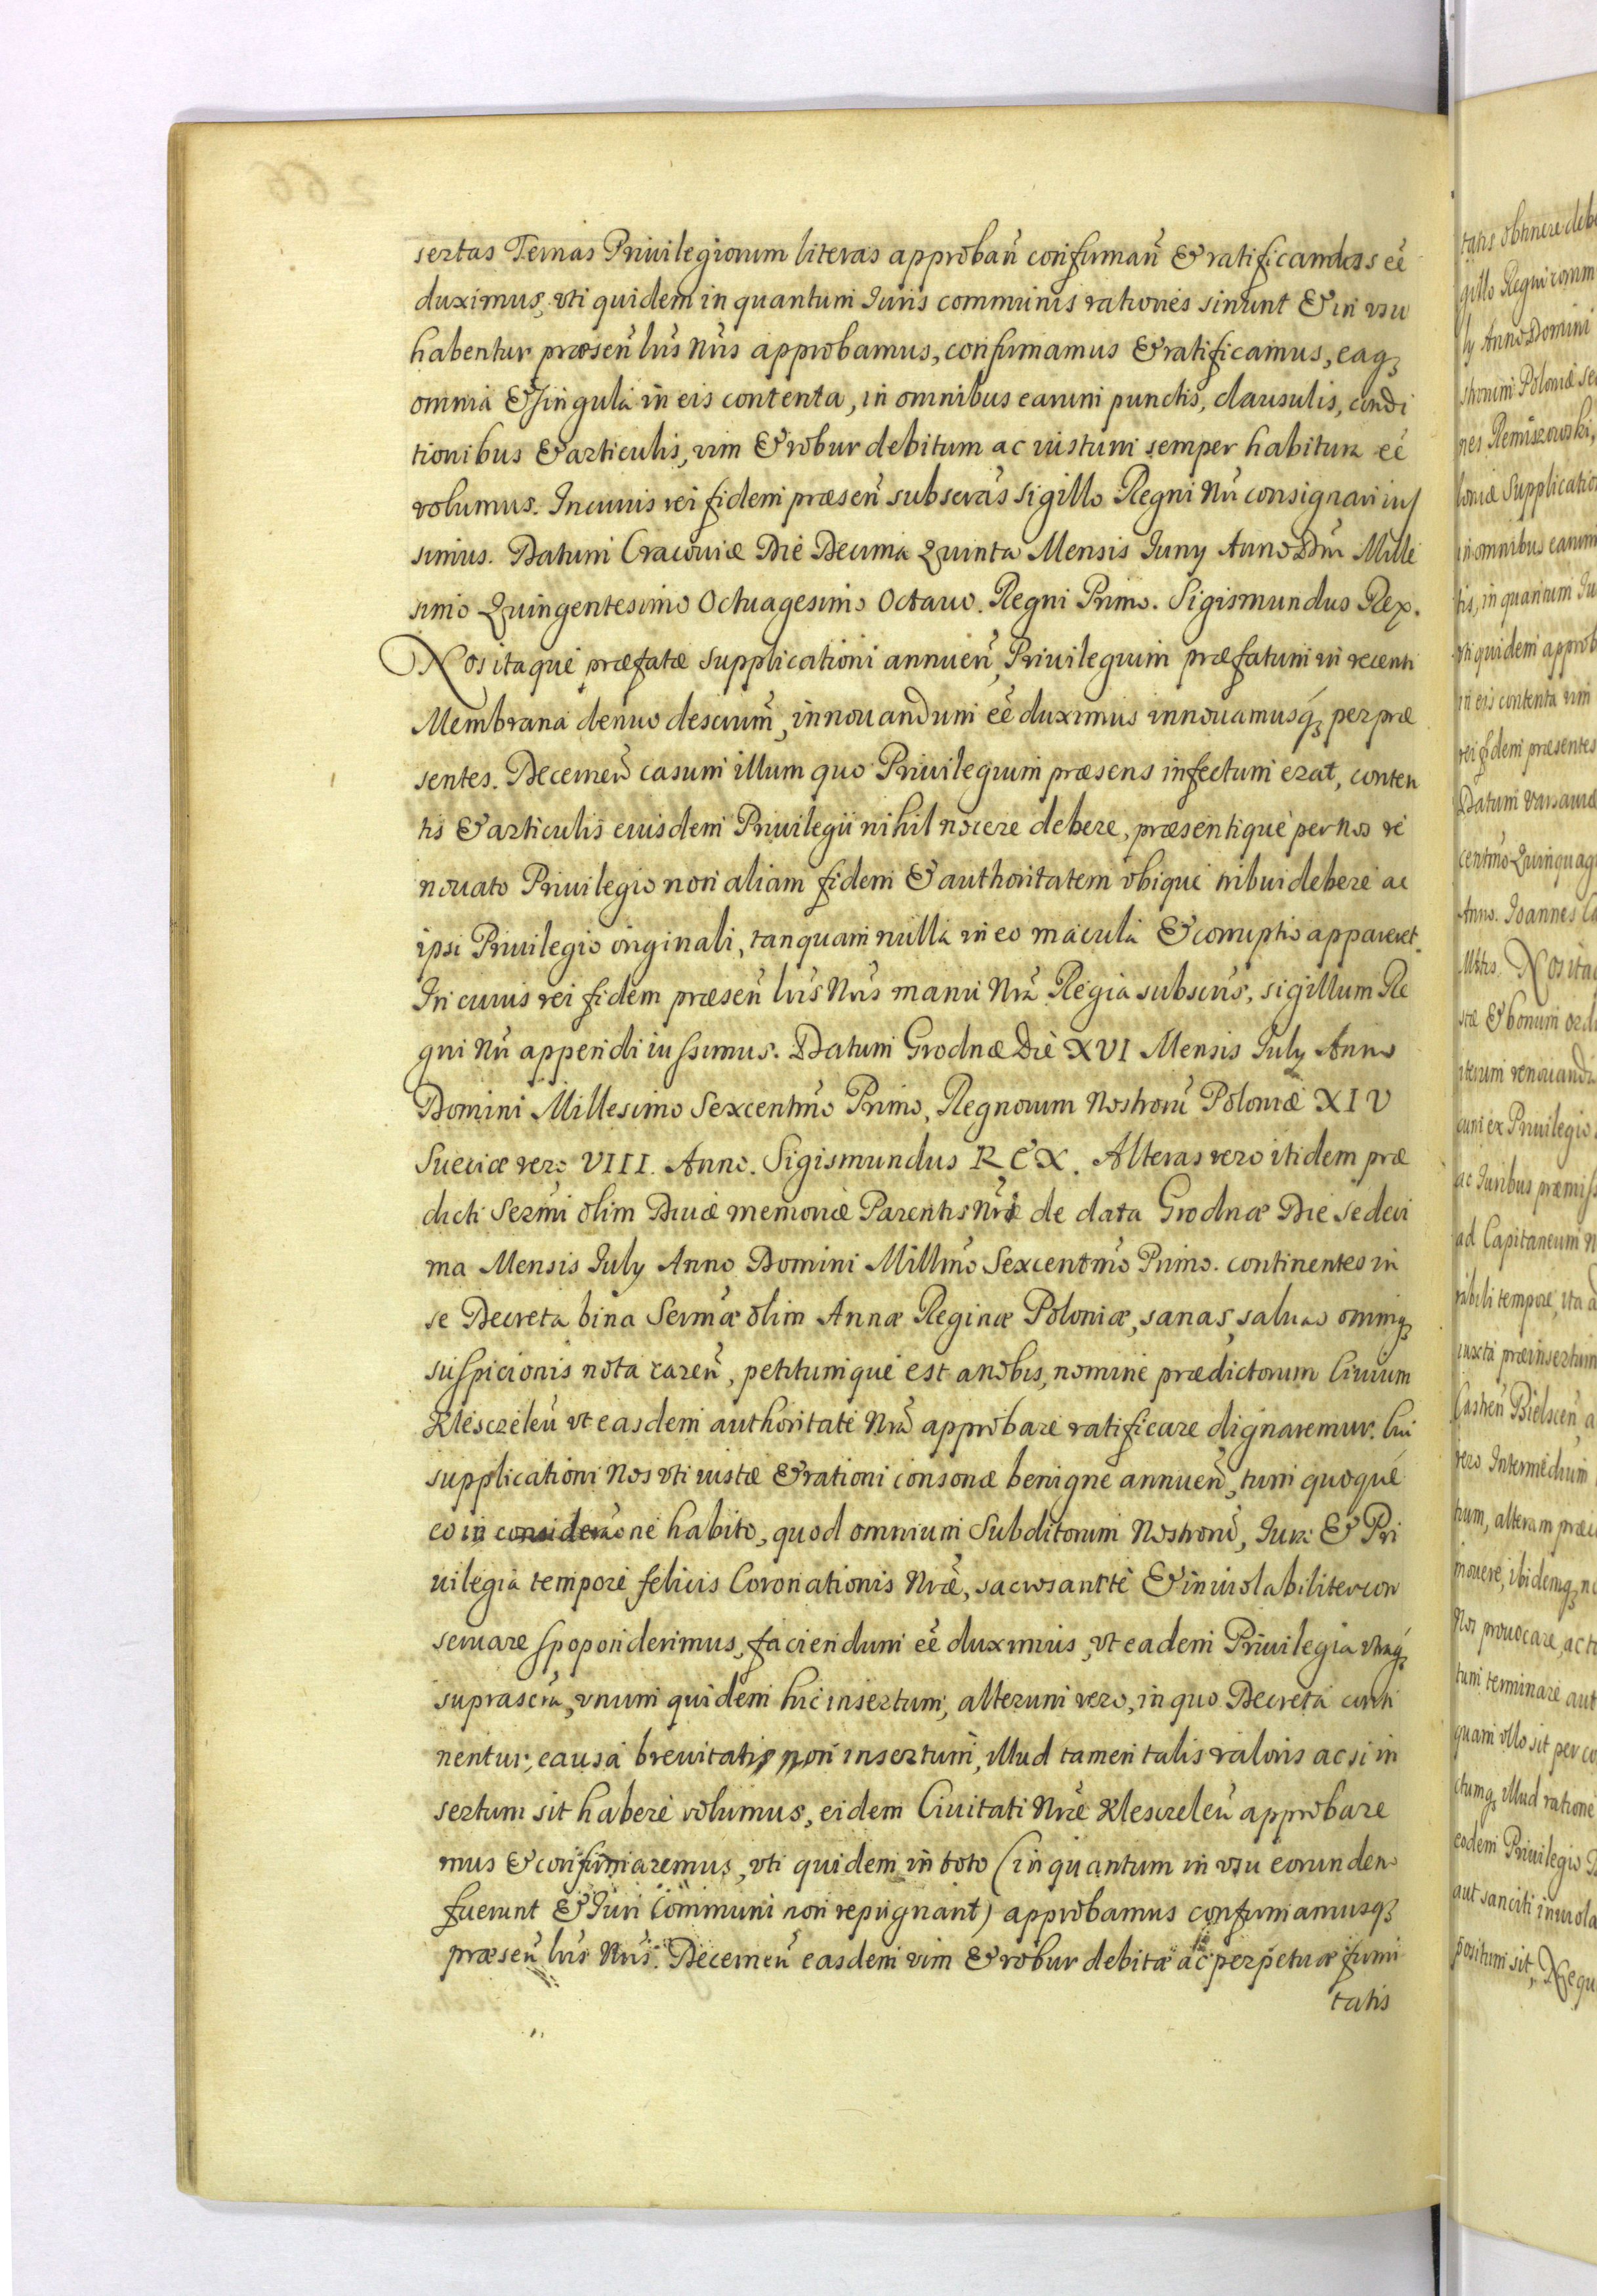 sertas Ternas Priuilegiorum literas approbañ confirmañ & ratificandas eẽ
duximus, vti quidem in quantum Iuris communis rationes sinunt & in vsu
habentur præseñ lr̃is Nr̃is approbamus, confirmamus & ratificamus, eaq₃
omnia & singula in eis contenta, in omnibus earum punctis, clausulis, condi
tionibus & articulis, vim & robur debitum ac iustum semper habitura eẽ
volumus. In cuius rei fidem præseñ subscr̃as sigillo Regni Nr̃i consignari ius
simus. Datum Cracouiæ Die Decima Quinta Mensis Iuny Anno Dñi Mille
simo Quingentesimo Octuagesimo Octauo. Regni Primo. Sigismundus Rex.
Nos itaque præfatæ supplicationi annueñ, Priuilegium præfatum in recenti
Membrana denuo descriptũ, innouandum eẽ duximus innouamusq́₃ per præ
sentes. Decerneñ casum illum quo Priuilegium præsens infectum erat, conten
tis & articulis eiusdem Priuilegii nihil nocere debere, præsentique per Nos re
nouato Priuilegio non aliam fidem & authoritatem vbique tribui debere ac
ipsi Priuilegio originali, tanquam nulla in eo macula & corruptio appareret.
In cuius rei fidem præseñ lr̃is Nr̃is manu Nr̃a Regia subscr̃is, sigillum Re
gni Nr̃i appendi iussimus. Datum Grodnæ Die XVI Mensis July Anno
Domini Millesimo Sexcentm̃o Primo, Regnorum Nostrorũ Poloniæ XIV
Sueciæ vero VIII. Anno. Sigismundus REX. Alteras vero itidem præ
dicti Serm̃i olim Diuæ memoriæ Parentis Nr̃i de data Grodnæ Die Sedeci
ma Mensis July Anno Domini Millm̃o Sexcentm̃o Primo. continentes in
se Decreta bina Serm̃æ olim Annæ Reginæ Poloniæ, sanas, saluas omniq₃
suspicionis nota careñ, petitumque est a nobis, nomine prædictorum Ciuium
Klesczeleñ vt easdem authoritate Nr̃a approbare ratificare dignaremur. Cui
supplicationi Nos vti iustæ & rationi consonæ benigne annueñ, tum quoque
eo in considerãone habito, quod omnium Subditorum Nostrorũ, Iura & Pri
uilegia tempore felicis Coronationis Nr̃æ, sacrosancte & inuiolabiliter con
seruare spoponderimus, faciendum eẽ duximus, vt eadem Priuilegia vtraq́₃
suprascr̃a, vnum quidem hic insertum, alterum vero, in quo Decreta conti
nentur, causa breuitatis non insertum, illud tamen talis valoris ac si in
sertum sit habere volumus, eidem Ciuitati Nr̃æ Klesczeleñ approbare
mus & confirmaremus, vti quidem in toto (in quantum in vsu eorundem
fuerunt & Iuri Communi non repugnant) approbamus confirmamusq₃
præseñ lr̃is Nr̃is. Decerneñ easdem vim & robur debitæ ac perpetuæ firmi
tatis